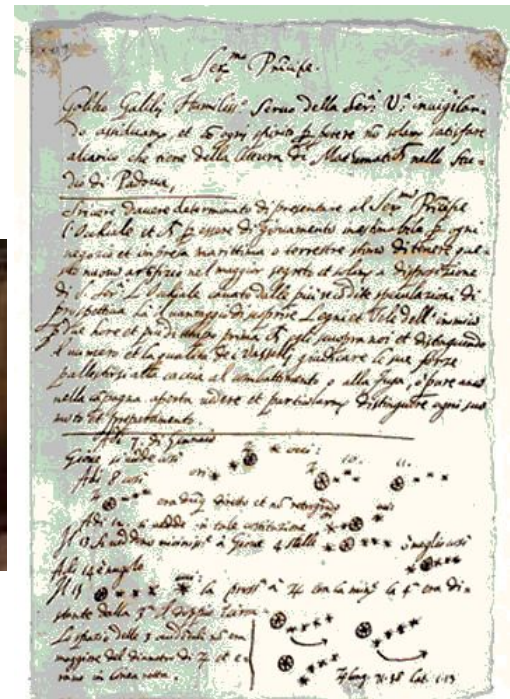 Ser.mo Principe.
Galileo Galilej Humiliss.o Servo della Ser.a V.a invigilan-
do assiduam.te et ogni spirito p. potere nõ solam satisfare
alcarico che tiene della lettura di Matematich nello Stu-
dio di Padova,
Scrivere d'avere determinato di presentare al Ser.mo Principe
l'Ochiale et p essere di giovamento inestimabile p ogni
negozio et impresa marittima o terrestre stimo di tenere que-
sto nuovo artifizio nel maggior segreto et solam a disposizione
di S. Ser.a L'Ochiale cavato dalle più recondite speculazioni di
prospettiva hà il vantaggio di scoprire Legni et Vele dell'inimico
p due hore et più di tempo prima egli scuopra noi et distinguendo
il numero et la qualità de i Vasselli giudicare le sue forze
pallestirsi alla caccia al combattimento o alla fuga, ò pure anco
nella capagna aperta vedere et particolarm distinguere ogni suo
moto et preparamento.
Adi 7. di Gennaio
Giove si vedde così
Adi 8 così
era diretto et nõ retrogrado
Adi 12 si vedde in tale costituzione
Il 13 si veddono vicinis.e à Giove 4 stelle ò meglio così
Adi 14 è nuglo
Il 15 la pross.a à ♃ era la min.e la 4.a era di-
stante dalla 3.a il doppio
Lo spazio delle 3 occidentali nõ era
maggiore del diametro di ♃ et e-
rano in linea retta.
♃ long. 71.38 lat. 1.13